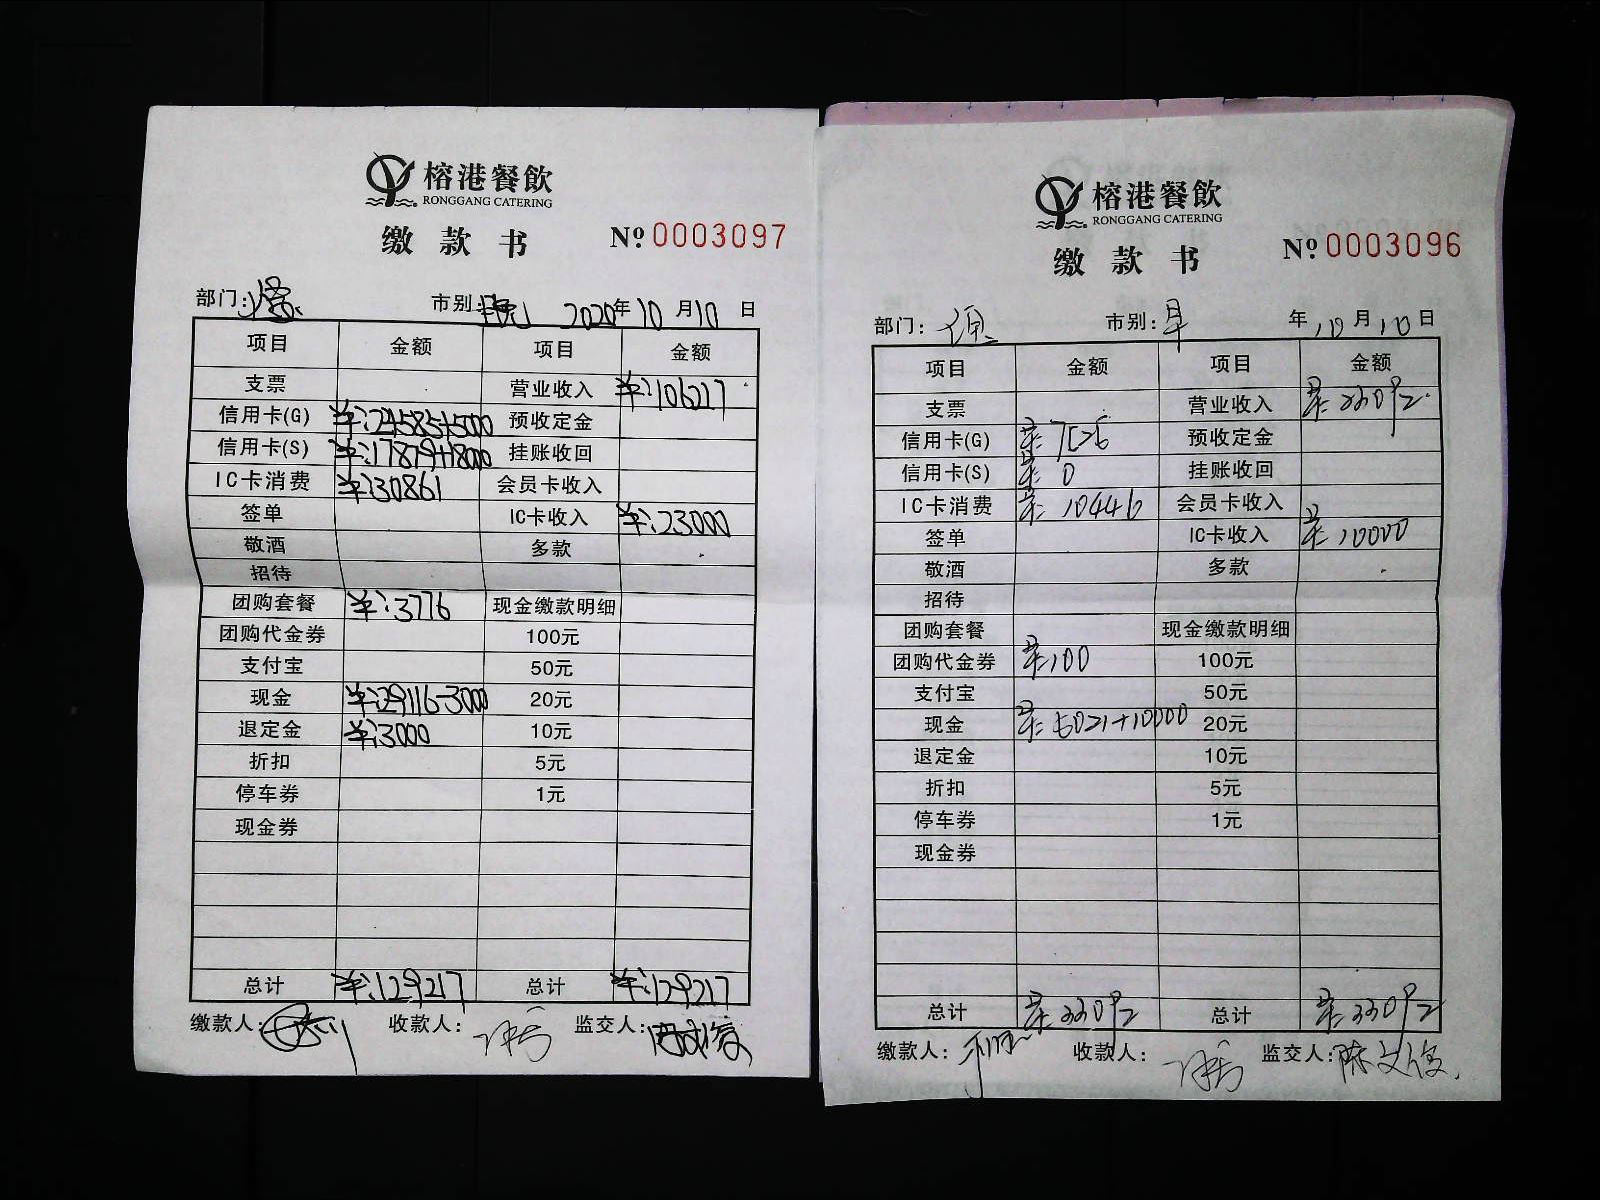 榕港餐飲
RONGGANG CATERING
缴款书 № 0003097
部门: 市别:晚 2020年10月10日
项目 金额 项目 金额
支票 营业收入 ¥:106217
信用卡(G) ¥:24585+5000 预收定金
信用卡(S) ¥:17879+18000 挂账收回
IC卡消费 ¥:30861 会员卡收入
签单 IC卡收入 ¥:23000
敬酒 多款
招待
团购套餐 ¥:3776 现金缴款明细
团购代金券 100元
支付宝 50元
现金 ¥:29116-3000 20元
退定金 ¥:3000 10元
折扣 5元
停车券 1元
现金券
总计 ¥:129217 总计 ¥:129217
缴款人: 收款人: 监交人:
榕港餐飲
RONGGANG CATERING
缴款书 № 0003096
部门: 市别:早 年10月10日
项目 金额 项目 金额
支票 营业收入 23092
信用卡(G) 预收定金
信用卡(S) 0 挂账收回
IC卡消费 10446 会员卡收入
签单 IC卡收入 10000
敬酒 多款
招待
团购套餐 现金缴款明细
团购代金券 100 100元
支付宝 50元
现金 5021+10000 20元
退定金 10元
折扣 5元
停车券 1元
现金券
总计 33092 总计 33092
缴款人: 收款人: 监交人:陈文俊